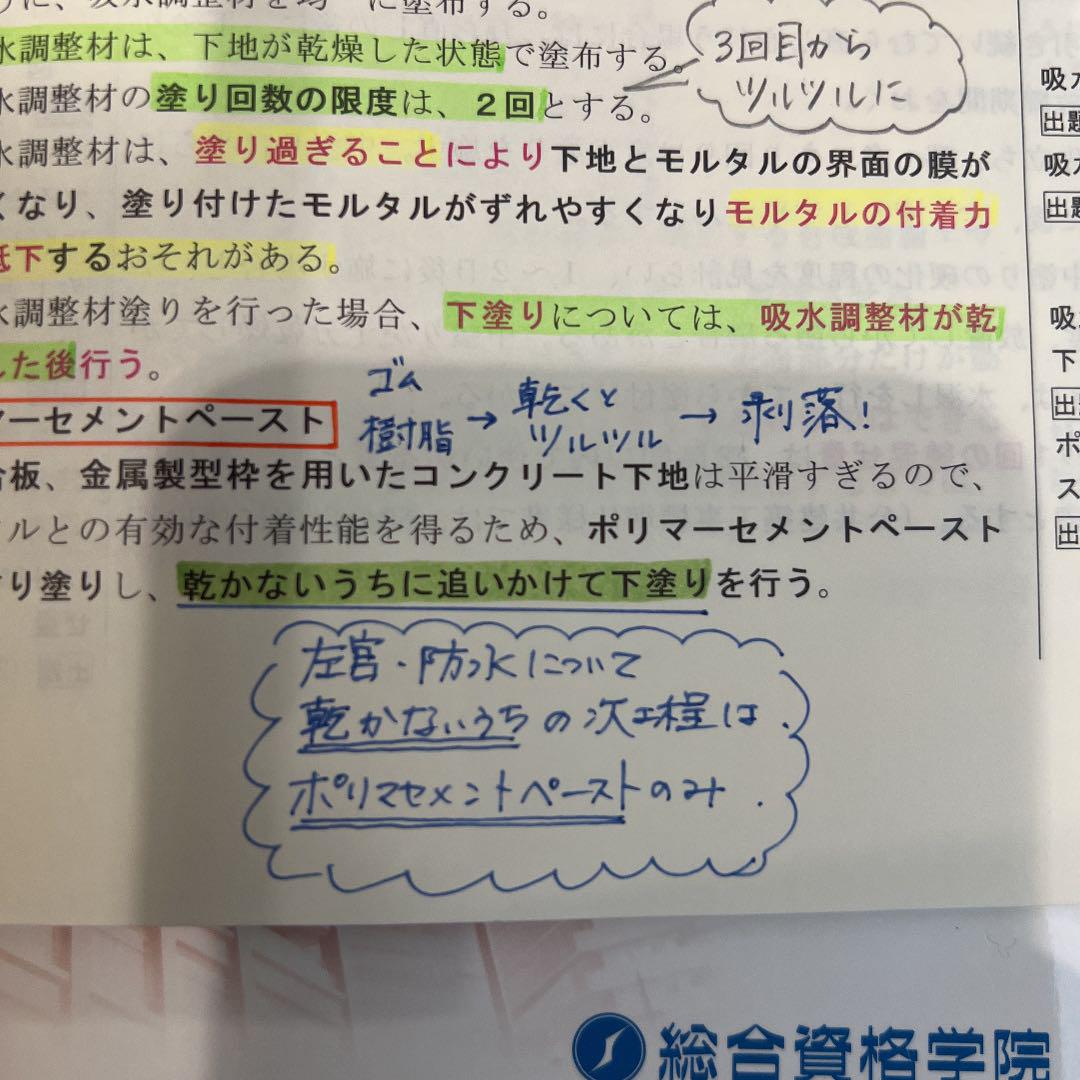 に、吸水調整材を均一に塗布する。
水調整材は、下地が乾燥した状態で塗布する。
水調整材の塗り回数の限度は、２回とする。
3回目から
ツルツルに
水調整材は、塗り過ぎることにより下地とモルタルの界面の膜が
くなり、塗り付けたモルタルがずれやすくなりモルタルの付着力
低下するおそれがある。
水調整材塗りを行った場合、下塗りについては、吸水調整材が乾
した後行う。
ゴム
樹脂→乾くと
ツルツル→剥落！
マーセメントペースト
合板、金属製型枠を用いたコンクリート下地は平滑すぎるので、
タルとの有効な付着性能を得るため、ポリマーセメントペースト
すり塗りし、乾かないうちに追いかけて下塗りを行う。
左官・防水について
乾かないうちの次工程は、
ポリマセメントペーストのみ.
吸水
出題
吸水
出題
吸
下
出
ポ
ス
出
総合資格学院